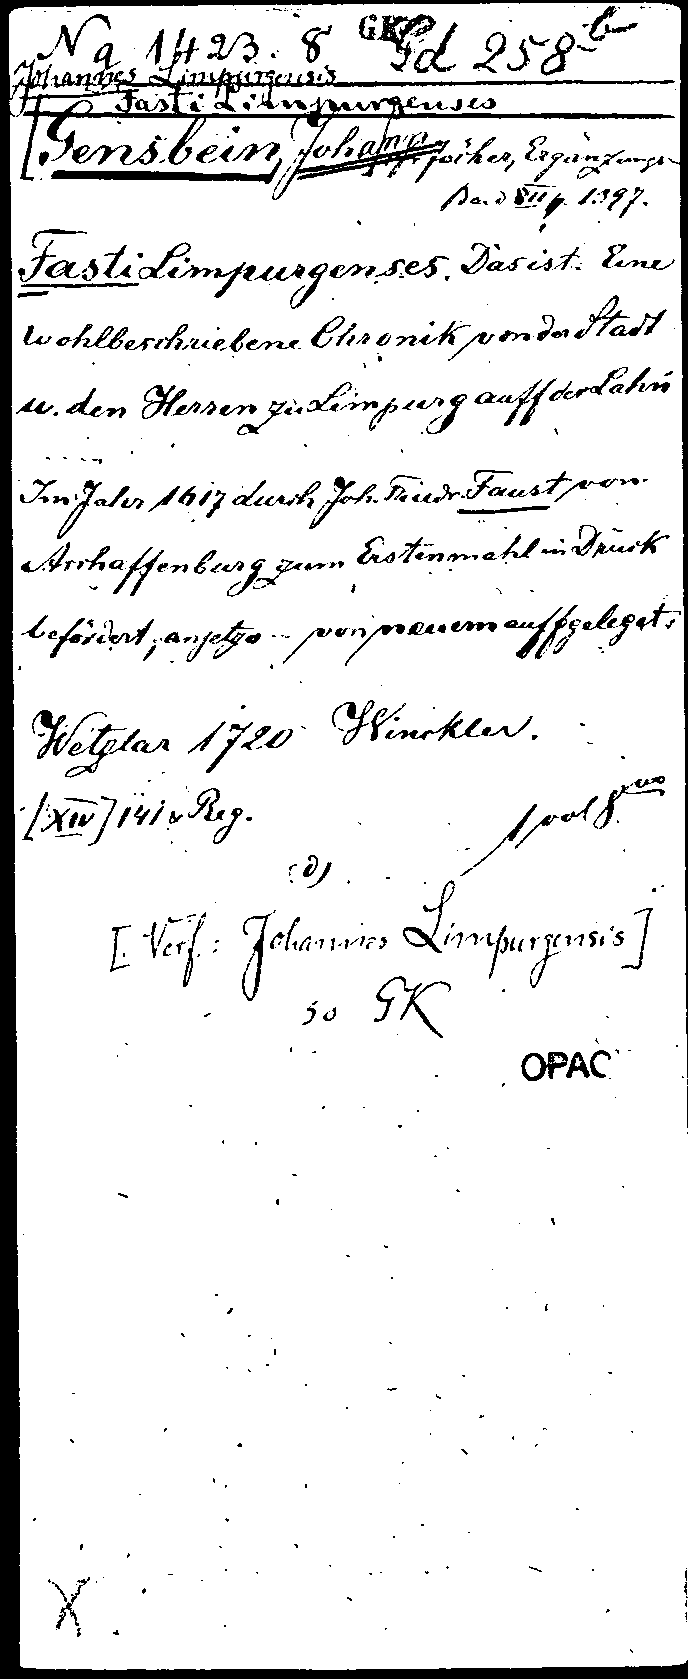 Na 1423. 8 GK Gd 258 b
Johannes Limpurgensis
Fasti Limpurgenses
[Gensbein, Johann Jöcher, Ergänzungs-
Band VII p. 1397.
Fasti Limpurgenses. Das ist: Eine
wohlbeschriebene Chronik von der Stadt
u. den Herren zu Limpurg auff der Lahn
....
Im Jahr 1617 durch Joh. Friedr. Faust von
Aschaffenburg zum Erstenmahl in Druck
befördert, anjetzo -- von neuem auffgelegt.
Wetzlar 1720 Winckler.
[XIV] 141 u Reg.
1 vol 8vo
(d)
[Verf.: Johannes Limpurgensis]
so GK
OPAC
X